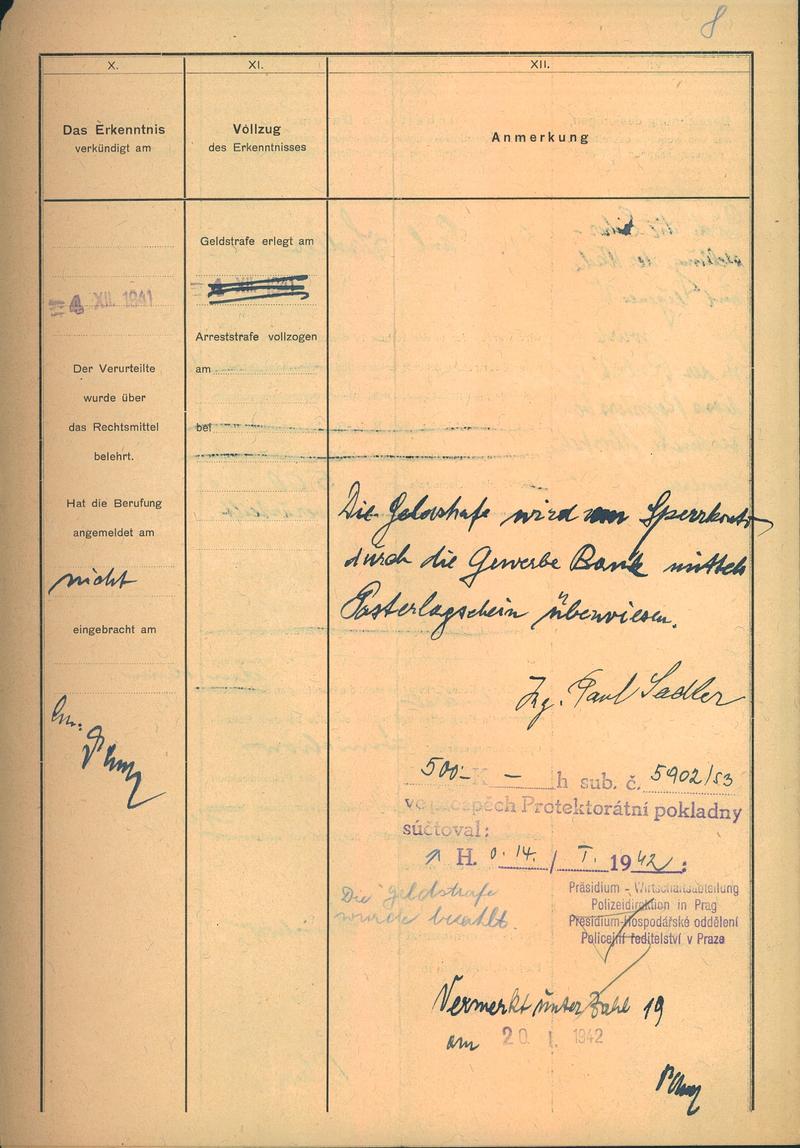 8
X.
Das Erkenntnis
verkündigt am
= 4. XII. 1941
Der Verurteilte
wurde über
das Rechtsmittel
belehrt.
Hat die Berufung
angemeldet am
nicht
eingebracht am
XI.
Vollzug
des Erkenntnisses
Geldstrafe erlegt am
= 4 XII. 1941
Arreststrafe vollzogen
am
bei
XII.
Anmerkung
Die Geldstrafe wird vom Sperrkonto
durch die Gewerbe Bank mittels
Posterlagschein überwiesen.
Ing. Paul Sadler
500·- K - h sub. č. 5902/53
ve prospěch Protektorátní pokladny
súčtoval:
H. 0. 14. / I. 1942 :
Präsidium - Wirtschaftsabteilung
Polizeidirektion in Prag
Presidium-Hospodářské oddělení
Policejní ředitelství v Praze
Die Geldstrafe
wurde bezahlt.
Vermerkt unter Zahl 19
am 20. I. 1942